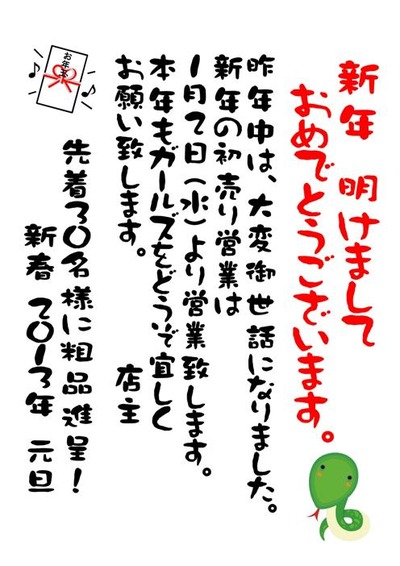 新年 明けまして
おめでとうございます。
昨年中は、大変御世話になりました。
新年の初売り営業は
1月2日(水)より営業致します。
本年もガールズをどうぞ宜しく
お願い致します。 店主
先着30名様に粗品進呈!
新春 2013年 元旦
お年玉